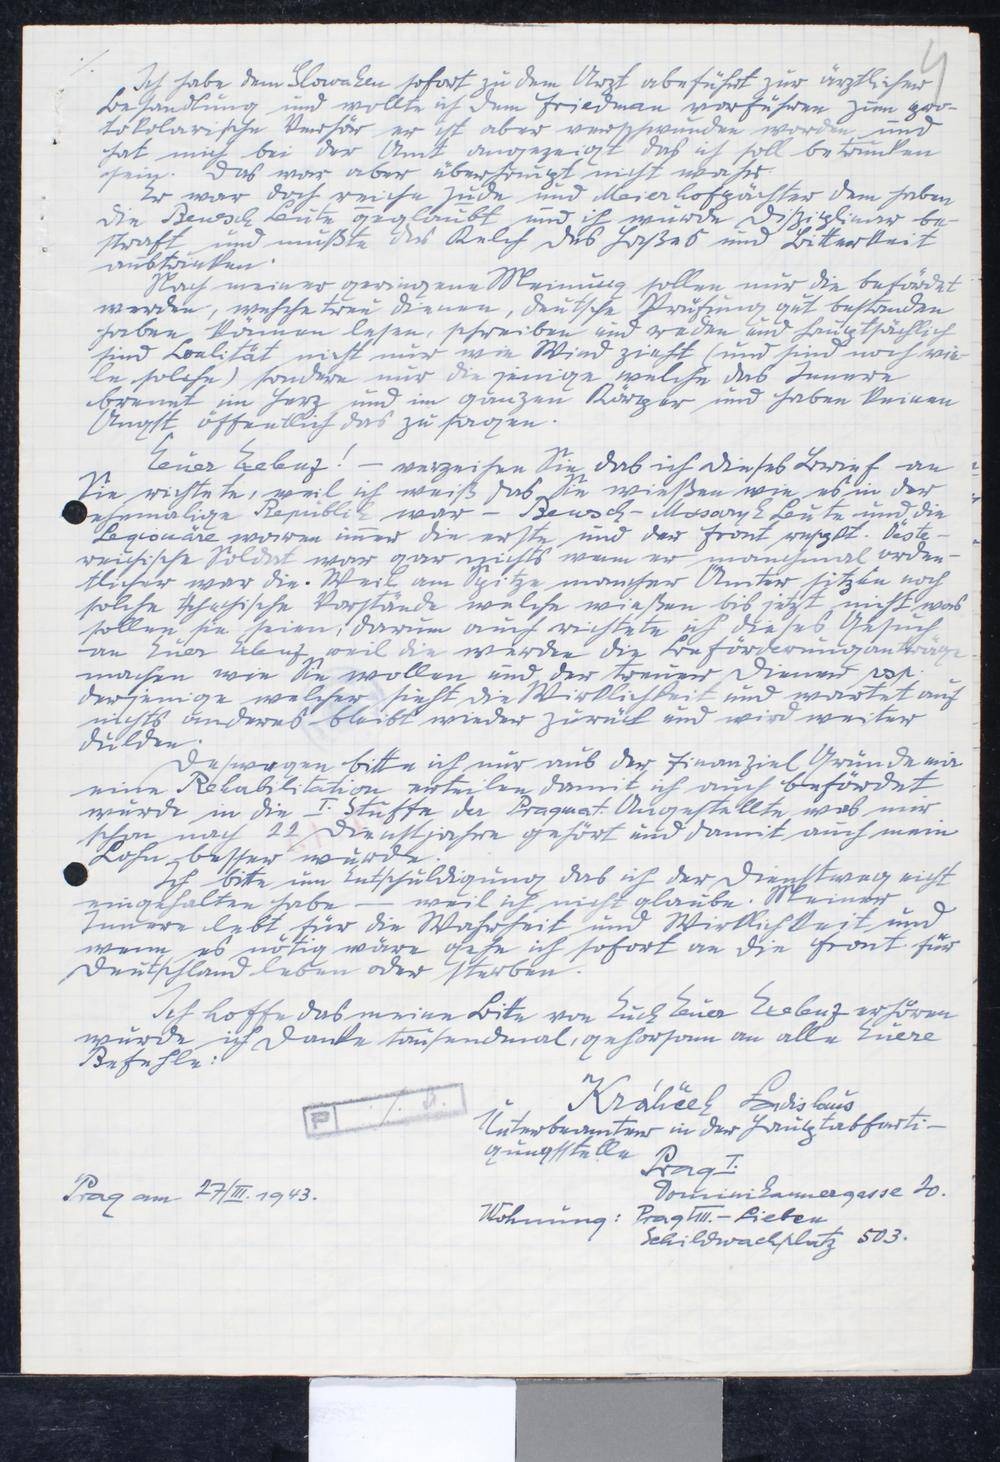 4
Ich habe dem Slowaken sofort zu dem Arzt abeführt zur ärztlicher
Behandlung und wollte ich dem Friedman vorführen zum pro-
tokolarische Verhör er ist aber verschwunden worden und
hat mich bei der Amt angezeigt das ich soll betrunken
sein. Das war aber überhaupt nicht wahr.
Er war doch reiche Jude und Meierhofpächter dem haben
die Benesch Leute geglaubt und ich wurde disziplinar be-
straft und mußte das Kelch des Haßes und Bitterkeit
austrinken.
Nach meiner geringene Meinung sollen nur die befördet
werden, welche treu dienen, deutsche Prüfung gut bestanden
haben können lesen, schreiben und reden und hauptsächlich
sind Loalität nicht nur wie Wind zieht (und sind noch vie-
le solche) sondern nur die jenige welche das Innere
brennt im Herz und im ganzen Körper und haben keinen
Angst öffentlich das zu sagen.
Euer Exelenz! — verzeihen Sie, das ich dieses Brief an
Sie richtete, weil ich weiß das Sie wießen wie es in der
ehemalige Republik war — Benesch-Masaryk Leute und die
Legionäre waren immer die erste und der Front Öste-
reichische Soldat war gar nichts wenn er manchmal orden-
tlicher war die. Weil am Spitze mancher Ämter sitzen noch
solche tschechische Vorstände welche wießen bis jetzt nicht was
sollen sie seien, darum auch richtete ich dieses Gesuch
an Euer Exlenz weil die werden die Beförderunganträge
machen wie Sie wollen und der treuer Diener resp.
derjenige welcher sieht die Wirklichkeit und wartet auf
nichts anderes bleibt wieder zurück und wird weiter
dulden.
Deswegen bitte ich nur aus der finanziel Gründe mir
eine Rehabilitation erteilen damit ich auch befördet
würde in die I. Stuffe der Pragmat. Angestellte was mir
schon nach 22 Dienstjahre gehört und damit auch mein
Lohn besser würde.
Ich bitte um Entschuldigung das ich der Dienstweg nicht
eingehalten habe — weil ich nicht glaube. Meiner
Innere lebt für die Wahrheit und Wirklichkeit und
wenn es nötig wäre gehe ich sofort an die Front für
Deutschland leben oder sterben.
Ich hoffe das meine Bitte von Euch Euer Exelenz erhören
würde ich danke tausendmal, gehorsam an alle Euere
Befehle:
P
Králíček Ladislaus
Unterbeamter in der Hauptabferti-
gungsstelle
Prag I.
Dominikanergasse 20.
Prag am 27/III. 1943.
Wohnung: Prag VIII. - Lieben
Schildwachplatz 503.